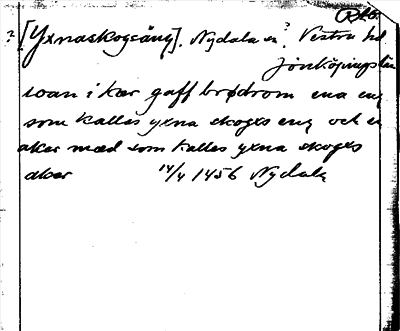 ? [Yxnaskogsäng]. Nydala sn? Västra hd
Jönköpings län
soan i kær gaff brødrom ena eng
som kallas yxna skogxs eng och en
aker mæd som kallas yxna skogxs
aker 14/4 1456 Nydala